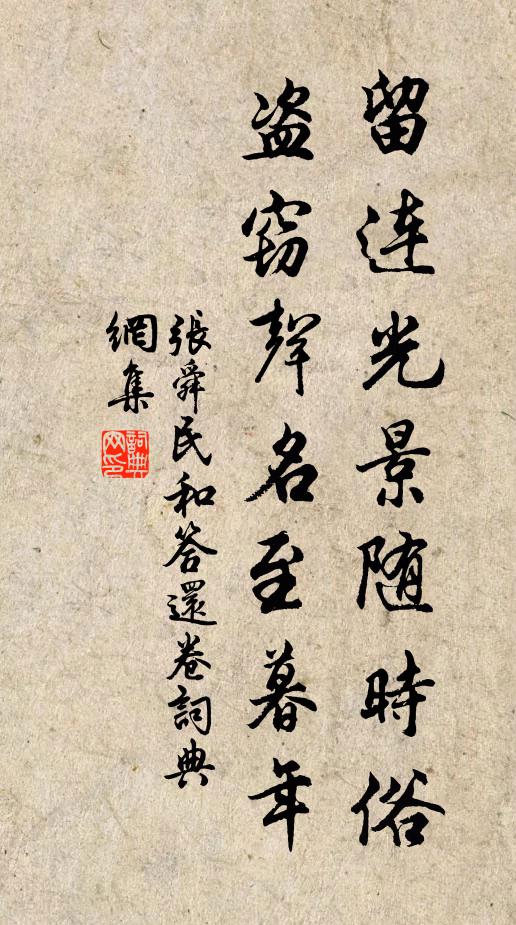 留連光景随時俗
盗窃聲名至暮年
張舜民和答還卷詞典
網集
詞典
网印